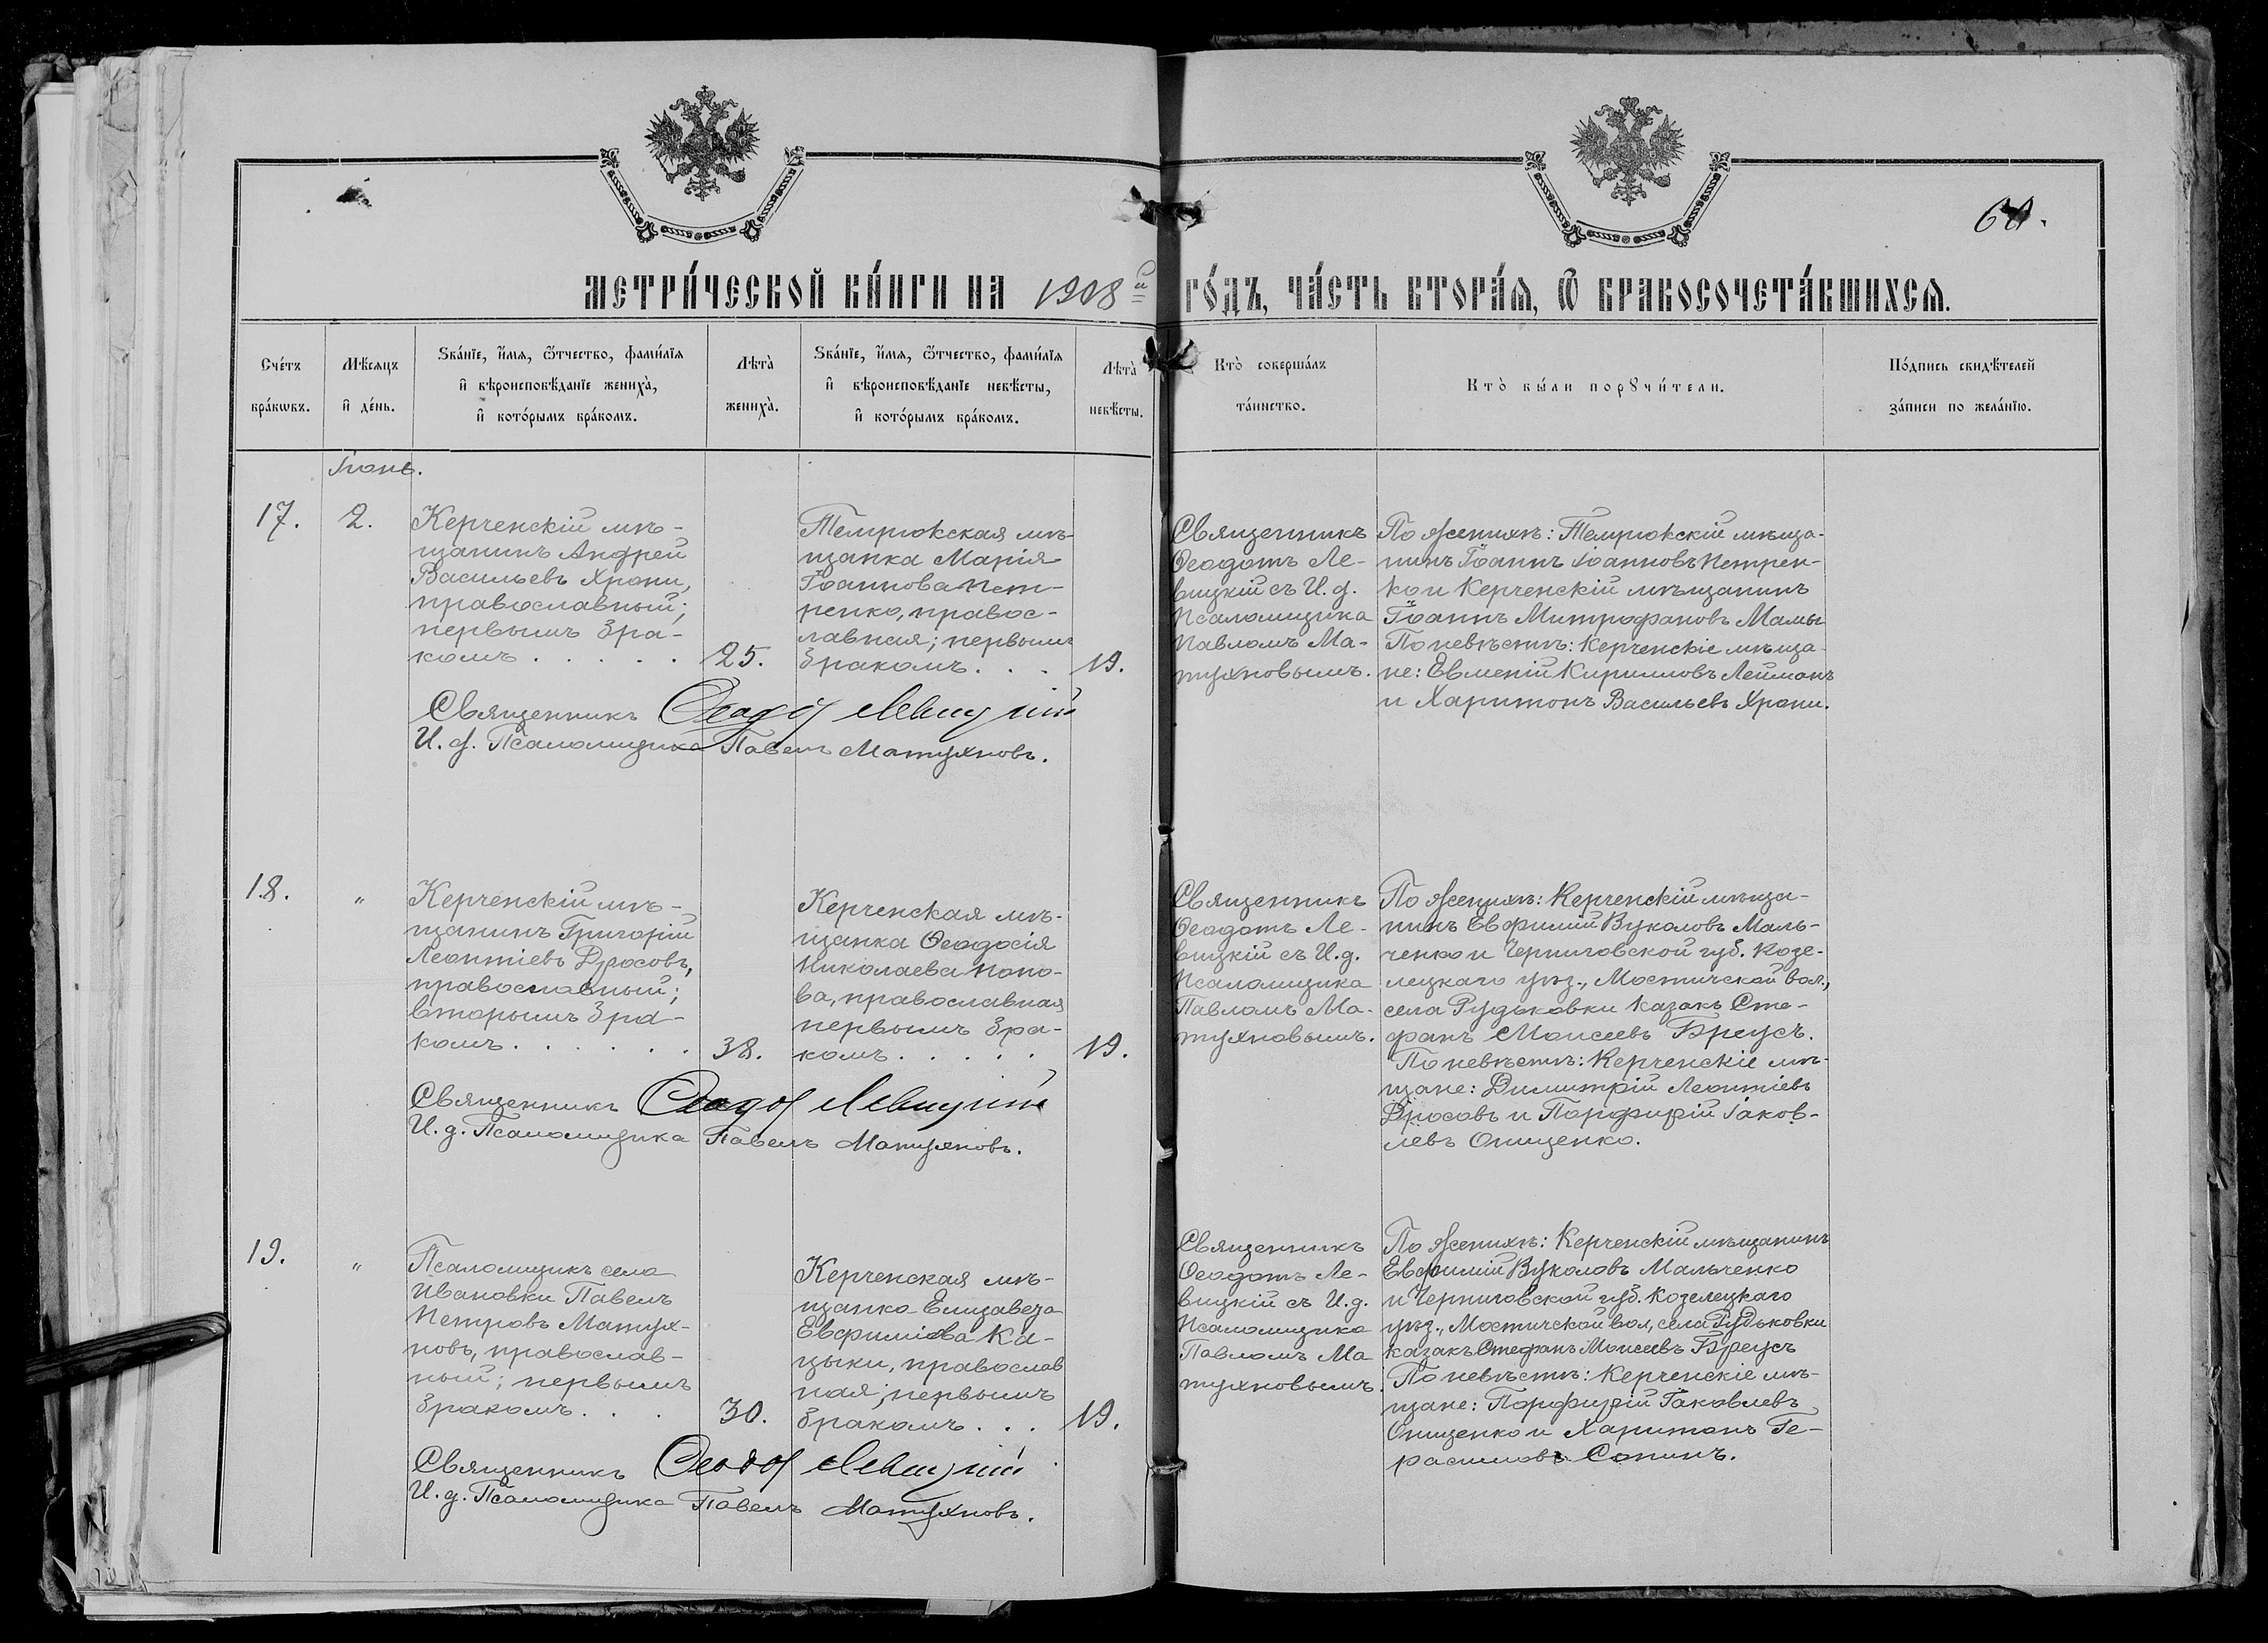 60.
МЕТРИ́ЧЕСКОЙ КН́ИГИ НА 1908й ГО́ДЪ, ЧА́СТЬ ВТОРА́Я, Ѿ БРАКОСОЧЕТА́ВШИХСЯ.
Сче́тъ бра́кωвъ.
Мѣ́сяцъ и҆ де́нь.
Зва́нїе, и҆́мя, ѻ҆́тчество, фами́лїя
и҆ вѣроисповѣ́данїе жениха̀,
и҆ кото́рымъ бра́комъ.
Лѣта̀ жениха̀.
Зва́нїе, и҆́мя, ѻ҆́тчество, фами́лїя
и҆ вѣроисповѣ́данїе невѣ́сты,
и҆ кото́рымъ бра́комъ.
Лѣта̀ невѣ́сты.
Кто̀ соверша́лъ
та́инство.
Кто̀ бы́ли порꙋчи́тели.
По́дпись свидѣ́телей
за́писи по жела́нїю.
Іюнь.
17.
2.
Керченскій мѣ-
щанинъ Андрей
Васильевъ Храпи,
православный;
первымъ бра-
комъ . . . . .
25.
Темрюкская мѣ-
щанка Марія
Іоаннова Пет-
ренко, правос-
лавная; первымъ
бракомъ. . .
19.
Священникъ
Ѳеодотъ Ле-
вицкій съ И.д.
Псаломщика
Павломъ Ма-
тухновымъ.
По женихѣ: Темрюкскій мѣща-
нинъ Іоаннъ Іоанновъ Петрен-
ко и Керченскій мѣщанинъ
Іоаннъ Митрофановъ Мамы
По невѣстѣ: Керченскіе мѣща-
не: Евменій Кирилловъ Лейманъ
и Харитонъ Васильевъ Храпи.
Священникъ Ѳеодотъ Левицкій
И.д. Псаломщика Павелъ Матухновъ.
18.
"
Керченскій мѣ-
щанинъ Григорій
Леонтіевъ Дросовъ,
православный;
вторымъ бра-
комъ . . . . . .
38.
Керченская мѣ-
щанка Ѳеодосія
Николаева Попо-
ва, православная
первымъ бра-
комъ . . . . .
19.
Священникъ
Ѳеодотъ Ле-
вицкій съ И.д.
Псаломщика
Павломъ Ма-
тухновымъ.
По женихѣ: Керченскій мѣща-
нинъ Евфимій Вуколовъ Маль-
ченко и Черниговской губ. Козе-
лецкаго уѣз., Мостичской вол.,
села Рудьковки казакъ Сте-
фанъ Моисеевъ Бреусъ.
По невѣстѣ: Керченскіе мѣ-
щане: Димитрій Леонтіевъ
Дросовъ и Порфирій Іаков-
левъ Онищенко.
Священникъ Ѳеодотъ Левицкій
И.д. Псаломщика Павелъ Матухновъ.
19.
"
Псаломщикъ села
Ивановки Павелъ
Петровъ Матух-
новъ, православ-
ный; первымъ
бракомъ. . .
30.
Керченская мѣ-
щанка Елизавета
Евфиміева Ка-
цыки, православ
ная; первымъ
бракомъ. . .
19.
Священникъ
Ѳеодотъ Ле-
вицкій съ И.д.
Псаломщика
Павломъ Ма
тухновымъ.
По женихѣ: Керченскій мѣщанинъ
Евфимій Вуколовъ Мальченко
и Черниговской губ. Козелецкаго
уѣз., Мостичской вол., села Рудьковки
казакъ Стефанъ Моисеевъ Бреусъ
По невѣстѣ: Керченскіе мѣ-
щане: Порфирій Іаковлевъ
Онищенко и Харитонъ Ге-
расимовъ Сопинъ.
Священникъ Ѳеодотъ Левицкій
И.д. Псаломщика Павелъ Матухновъ.